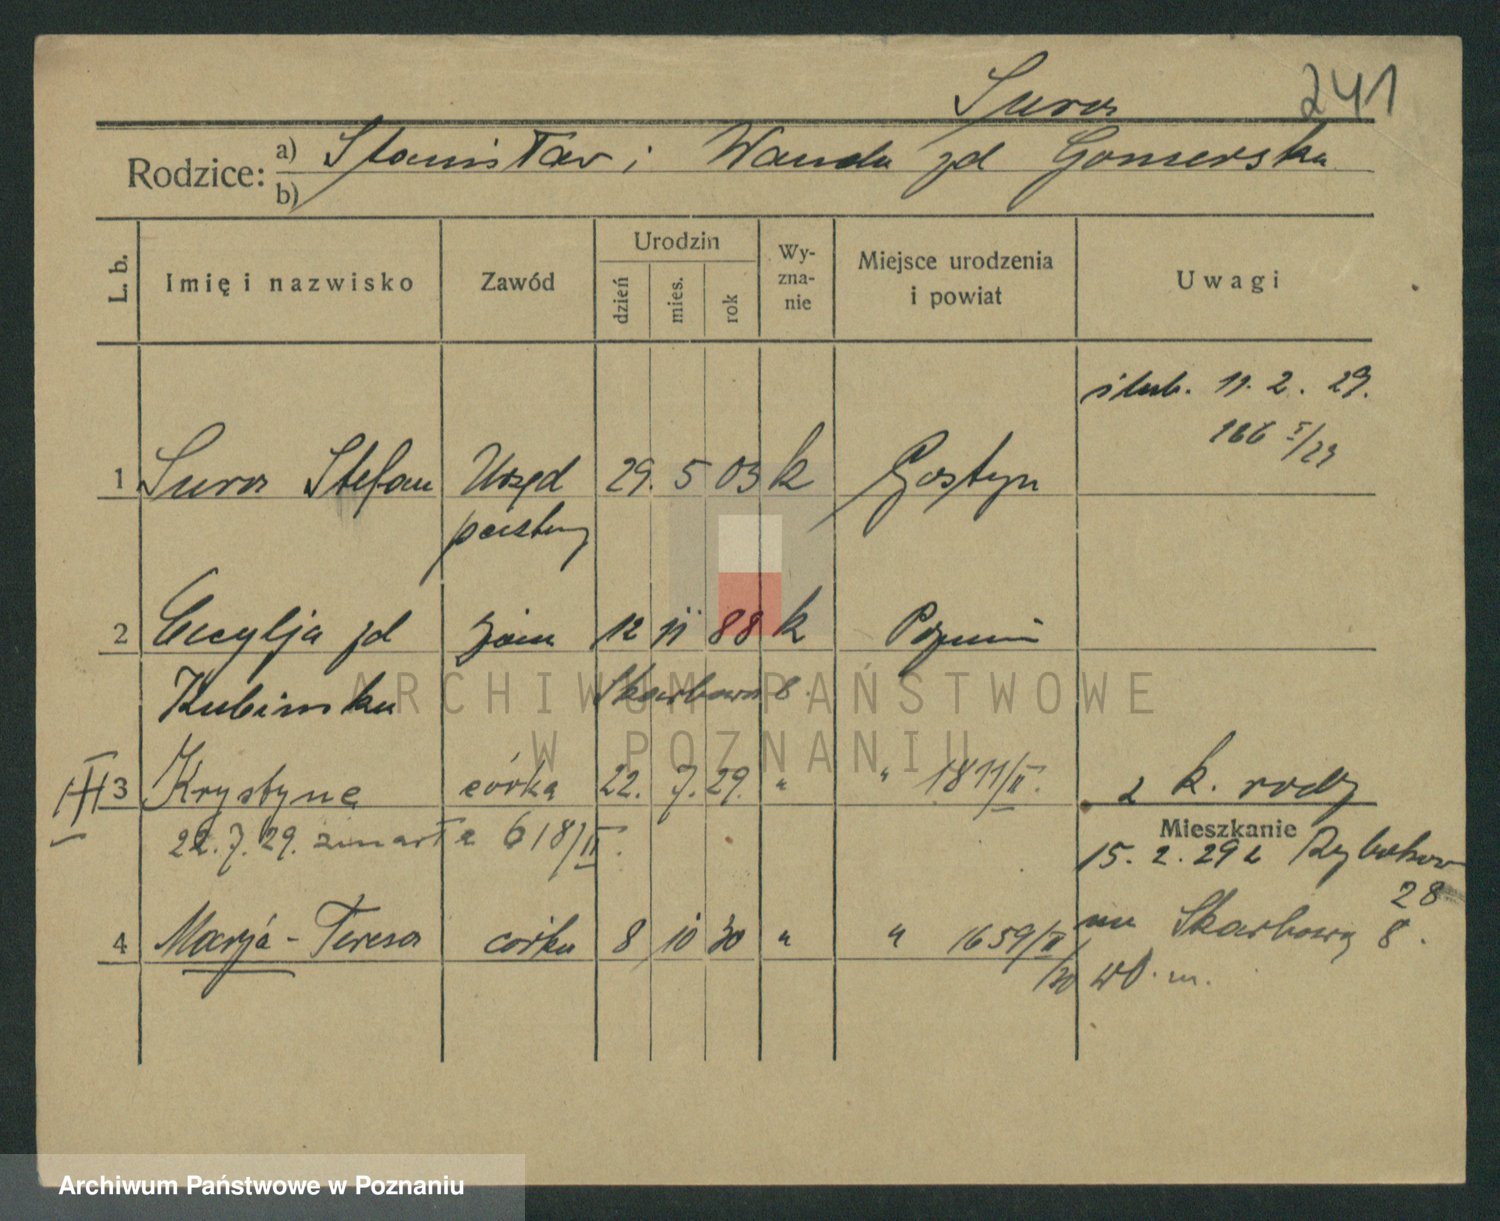 Suros 241
Rodzice: a) Stanisław i Wanda zd Gomerska
b)
L. b. Imię i nazwisko Zawód Urodzin dzień mies. rok Wyznanie Miejsce urodzenia i powiat Uwagi
ślub. 11. 2. 29.
166 I/29
1 Suros Stefan Urzęd 29. 5 03 k Gostyn
państw
2 Cecylja zd żona 12 11 88 k Poznań
Kubinska Skarbowa 8.
III 3 Krystyna córka 22. 7. 29. " " 1811/II. z k. rodz
22. 7. 29. zmarła 618/II.
Mieszkanie
15. 2. 29 z Rybakow
28
4 Marja - Teresa córka 8 10 30 " " 1659/II/30 na Skarbową 8.
wł. m.
ARCHIWUM PAŃSTWOWE
W POZNANIU
Archiwum Państwowe w Poznaniu